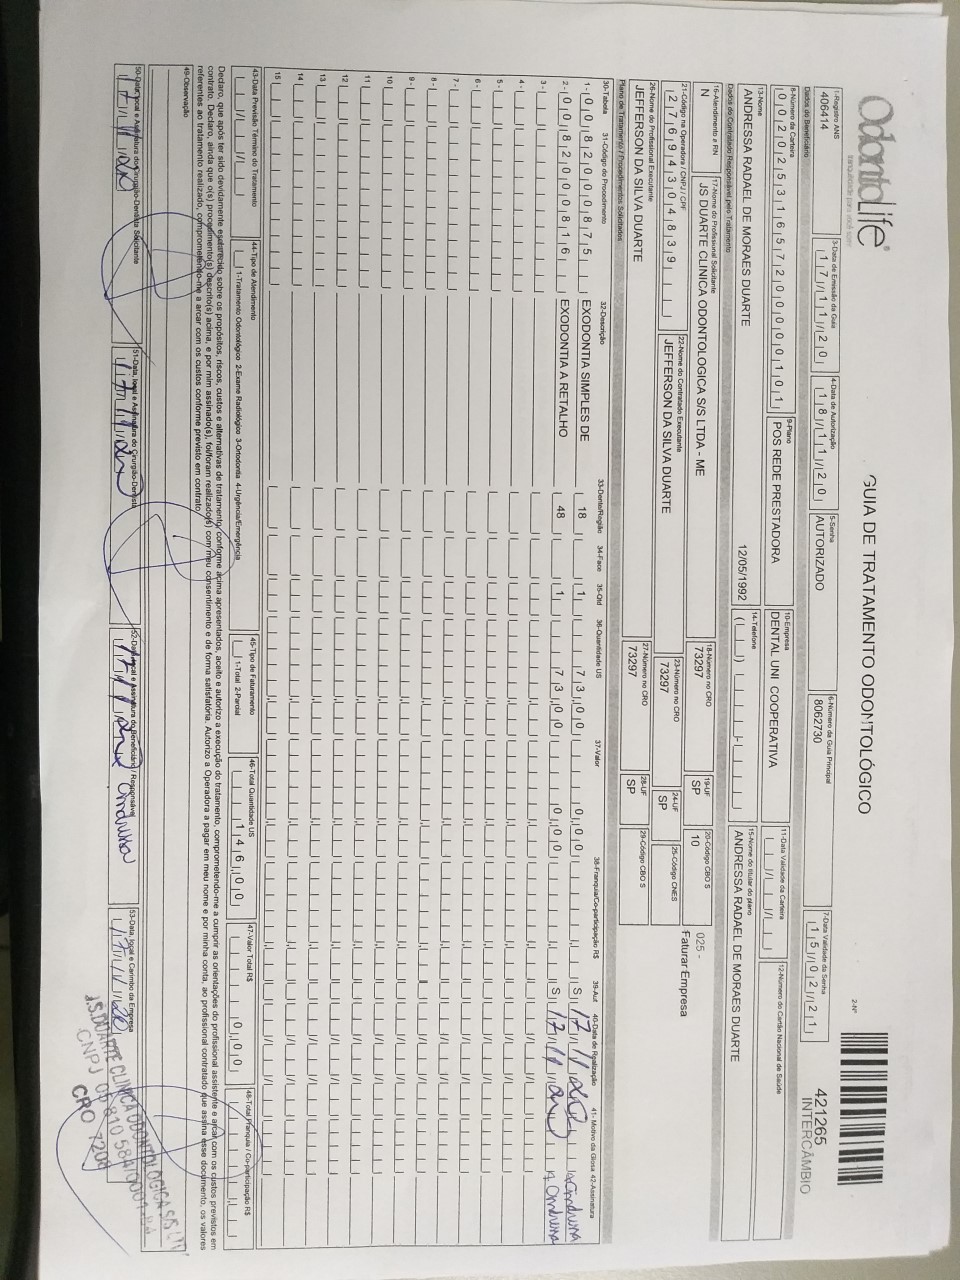 OdontoLife®
tranquilidade para você sorrir
GUIA DE TRATAMENTO ODONTOLÓGICO
2-Nº
421265
INTERCÂMBIO
1-Registro ANS
406414
3-Data de Emissão da Guia
17/11/20
4-Data de Autorização
18/11/20
5-Senha
AUTORIZADO
6-Número da Guia Principal
8062730
7-Data Validade da Senha
15/02/21
Dados do Beneficiário
8-Número da Carteira
00202531657200000101
9-Plano
POS REDE PRESTADORA
10-Empresa
DENTAL UNI COOPERATIVA
11-Data Validade da Carteira
12-Número do Cartão Nacional de Saúde
13-Nome
ANDRESSA RADAEL DE MORAES DUARTE
12/05/1992
14-Telefone
15-Nome do titular do plano
ANDRESSA RADAEL DE MORAES DUARTE
Dados do Contratado Responsável pelo Tratamento
16-Atendimento a RN
N
17-Nome do Profissional Solicitante
JS DUARTE CLINICA ODONTOLOGICA S/S LTDA - ME
18-Número no CRO
73297
19-UF
SP
20-Código CBO S
10
025 -
Faturar Empresa
21-Código na Operadora / CNPJ / CPF
27694304839
22-Nome do Contratado Executante
JEFFERSON DA SILVA DUARTE
23-Número no CRO
73297
24-UF
SP
25-Código CNES
26-Nome do Profissional Executante
JEFFERSON DA SILVA DUARTE
27-Número no CRO
73297
28-UF
SP
29-Código CBO S
Plano de Tratamento / Procedimentos Solicitados
30-Tabela 31-Código do Procedimento 32-Descrição 33-Dente/Região 34-Face 35-Qtd 36-Quantidade US 37-Valor 38-Franquia/Co-participação R$ 39-Aut 40-Data de Realização 41- Motivo da Glosa 42-Assinatura
1- 00 82000875 EXODONTIA SIMPLES DE 18 1 73,00 0,00 S 17/11/20
2- 00 82000816 EXODONTIA A RETALHO 48 1 73,00 0,00 S 17/11/20
3-
4-
5-
6-
7-
8-
9-
10
11
12
13
14
15
43-Data Previsão Término do Tratamento
44-Tipo de Atendimento
1-Tratamento Odontológico 2-Exame Radiológico 3-Ortodontia 4-Urgência/Emergência
45-Tipo de Faturamento
1-Total 2-Parcial
46-Total Quantidade US
146,00
47-Valor Total R$
0,00
48-Total Franquia / Co-participação R$
Declaro, que após ter sido devidamente esclarecido sobre os propósitos, riscos, custos e alternativas de tratamento, conforme acima apresentados, aceito e autorizo a execução do tratamento, comprometendo-me a cumprir as orientações do profissional assistente e arcar com os custos previstos em
contrato. Declaro, ainda que o(s) procedimento(s) descrito(s) acima, e por mim assinado(s), foi/foram realizado(s) com meu consentimento e de forma satisfatória. Autorizo a Operadora a pagar em meu nome e por minha conta, ao profissional contratado que assina esse documento, os valores
referentes ao tratamento realizado, comprometendo-me a arcar com os custos conforme previsto em contrato.
49-Observação
50-Data, local e Assinatura do Cirurgião-Dentista Solicitante
17/11/20
51-Data, local e Assinatura do Cirurgião-Dentista
17/11/20
52-Data, local e Assinatura do Beneficiário / Responsável
17/11/20
53-Data, local e Carimbo da Empresa
17/11/20
J.S.DUARTE CLINICA ODONTOLOGICA S/S